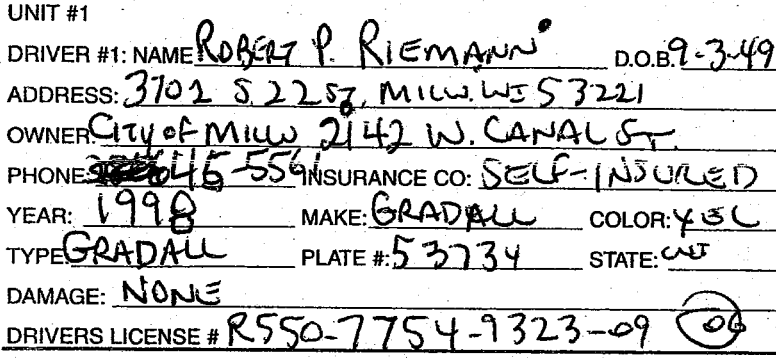 UNIT #1
DRIVER #1: NAME ROBERT P. RIEMANN D.O.B. 9-3-49
ADDRESS: 3702 S 22 ST, MILW. WI 53221
OWNER: CITY OF MILW 2142 W. CANAL ST.
PHONE: 45-5591 INSURANCE CO: SELF-INSURED
YEAR: 1998 MAKE: GRADALL COLOR: YEL
TYPE GRADALL PLATE #: 53734 STATE: WI
DAMAGE: NONE
DRIVERS LICENSE # R550-7754-9323-09 06